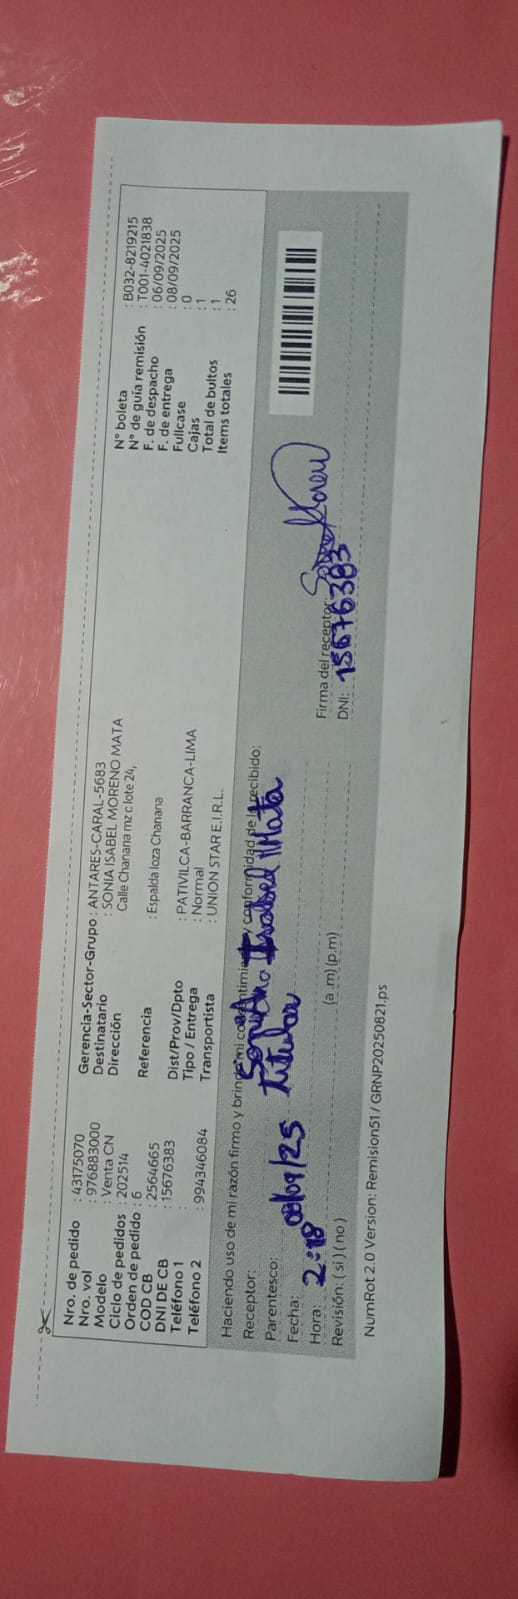 Nro. de pedido : 43175070
Nro. vol : 976883000
Modelo : Venta CN
Ciclo de pedidos : 202514
Orden de pedido : 6
COD CB : 2564665
DNI DE CB : 15676383
Teléfono 1 :
Teléfono 2 : 994346084
Gerencia-Sector-Grupo : ANTARES-CARAL-5683
Destinatario : SONIA ISABEL MORENO MATA
Dirección Calle Chanana mz c lote 24,
Referencia : Espalda loza Chanana
Dist/Prov/Dpto : PATIVILCA-BARRANCA-LIMA
Tipo / Entrega : Normal
Transportista : UNION STAR E.I.R.L.
N° boleta : B032-8219215
N° de guía remisión : T001-4021838
F. de despacho : 06/09/2025
F. de entrega : 08/09/2025
Fullcase : 0
Cajas : 1
Total de bultos : 1
Items totales : 26
Haciendo uso de mi razón firmo y brindo mi consentimiento y conformidad de lo recibido:
Receptor: Isabel Mata
Parentesco: titular
Fecha: 08/09/25
Hora: 2:18 (a .m) (p.m)
Revisión: ( si ) ( no )
Firma del receptor:
DNI: 15676383
NumRot 2.0 Version: Remision51 / GRNP20250821.ps